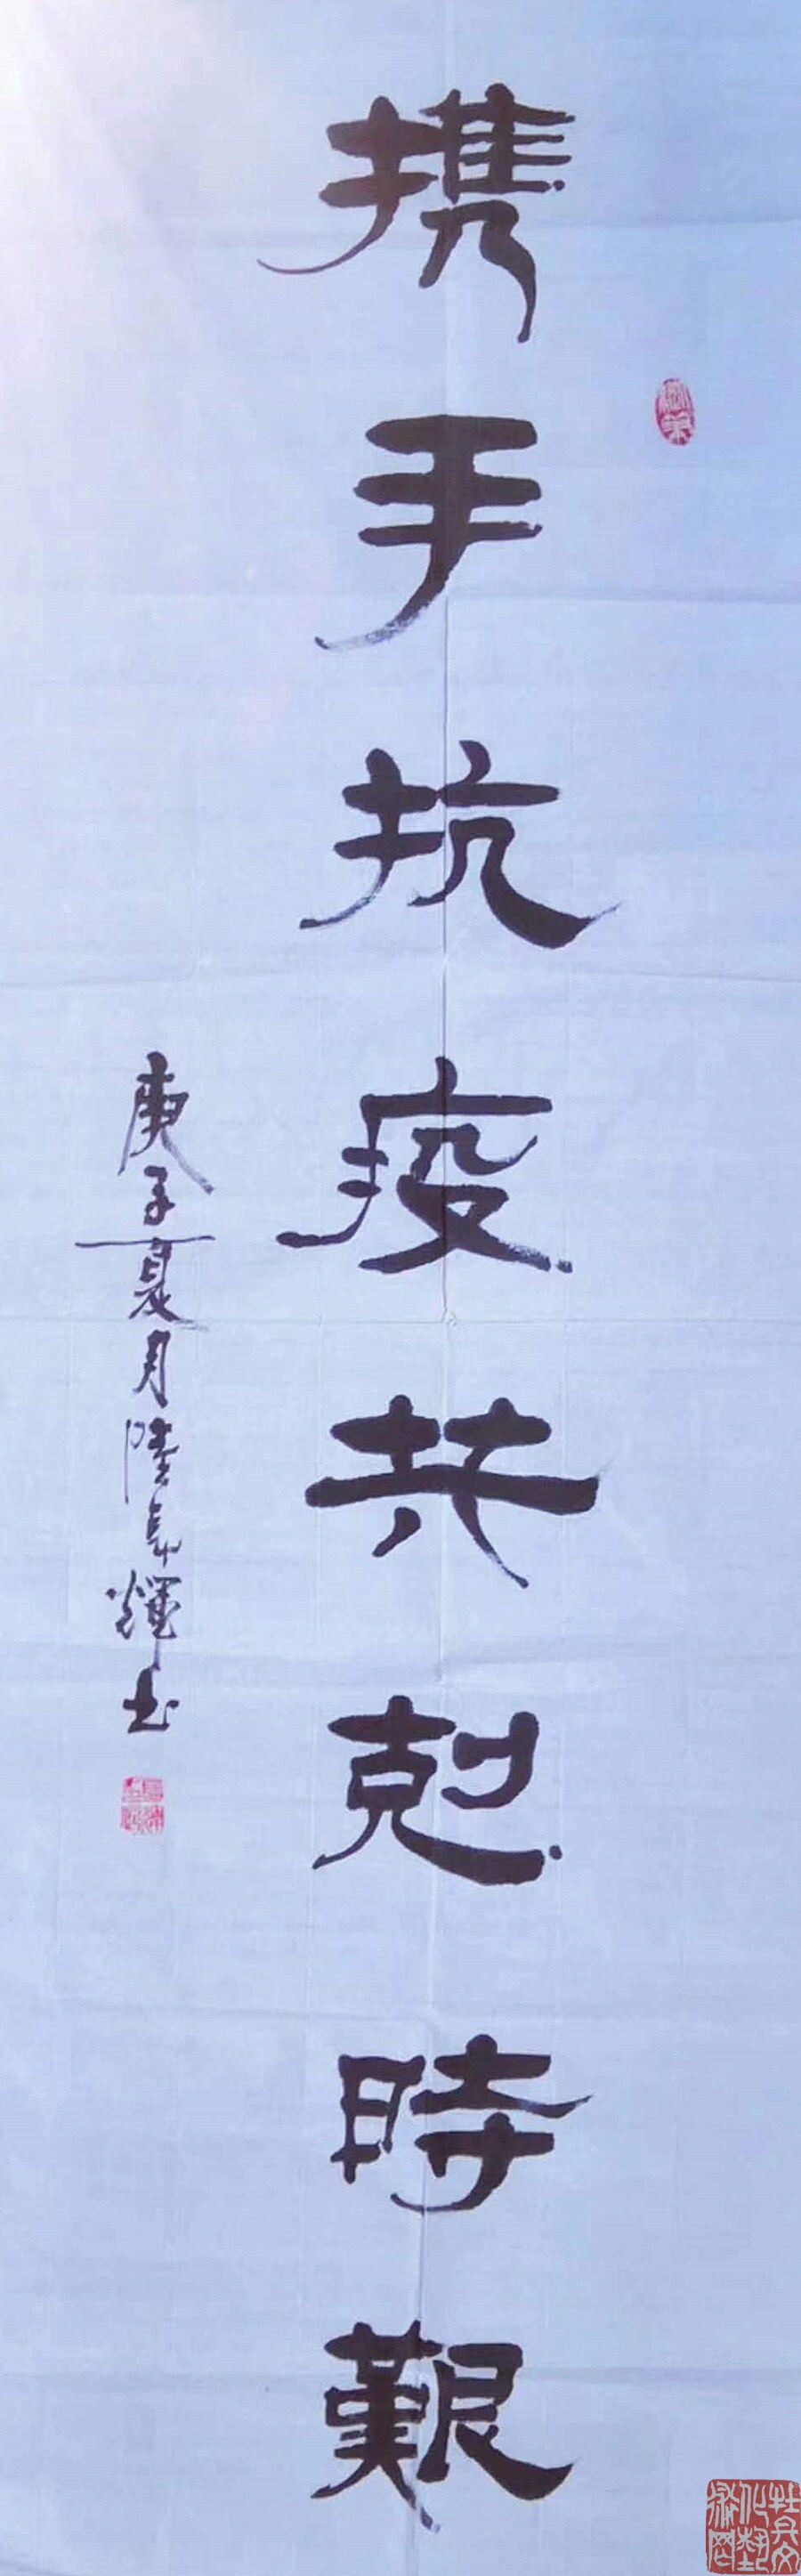 携手抗疫共剋時艱
庚子夏月陸長輝书